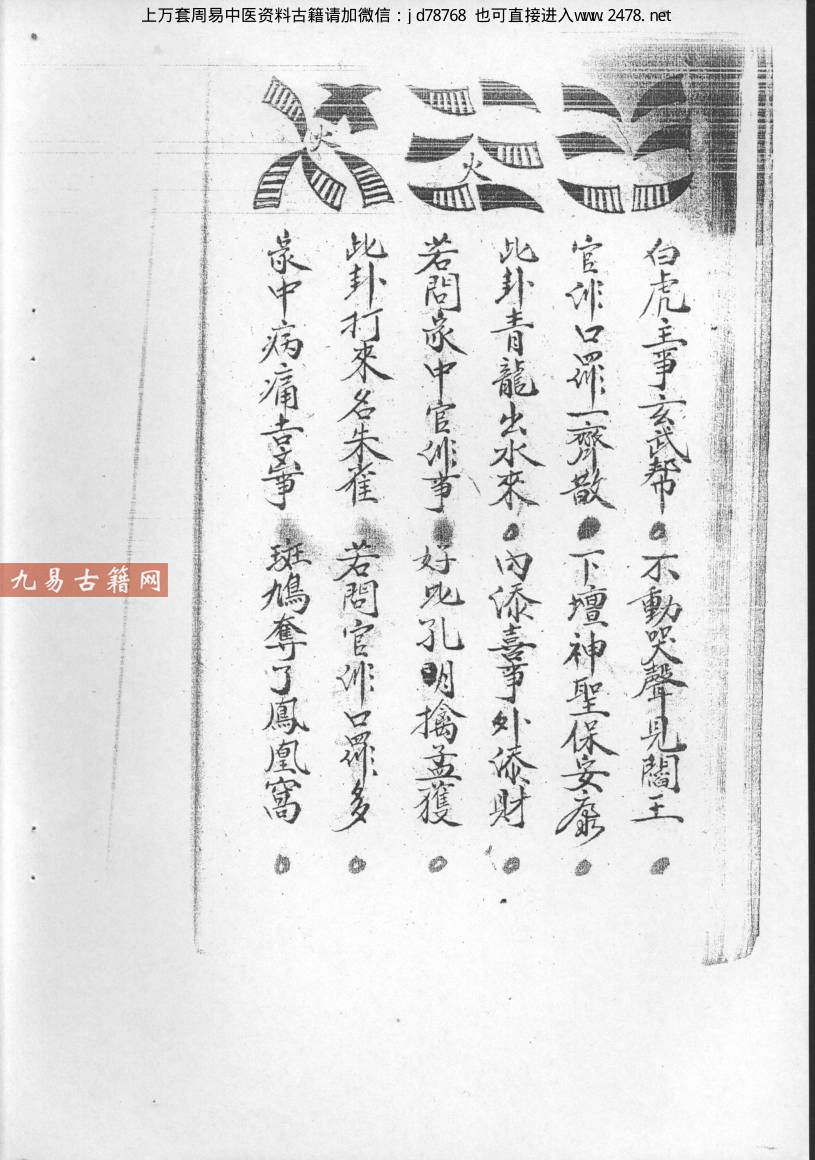 上万套周易中医资料古籍请加微信：jd78768 也可直接进入www.2478.net
火
火
白虎主事玄武帮 不動哭聲見閻王
官非口罪一齊散 下壇神聖保安康
此卦青龍出水來 内添喜事外添財
若問家中官非事 好比孔明擒孟獲
此卦打來名朱雀 若問官非口罪多
家中病痛 事 斑鳩奪了鳳凰窩
九易古籍网